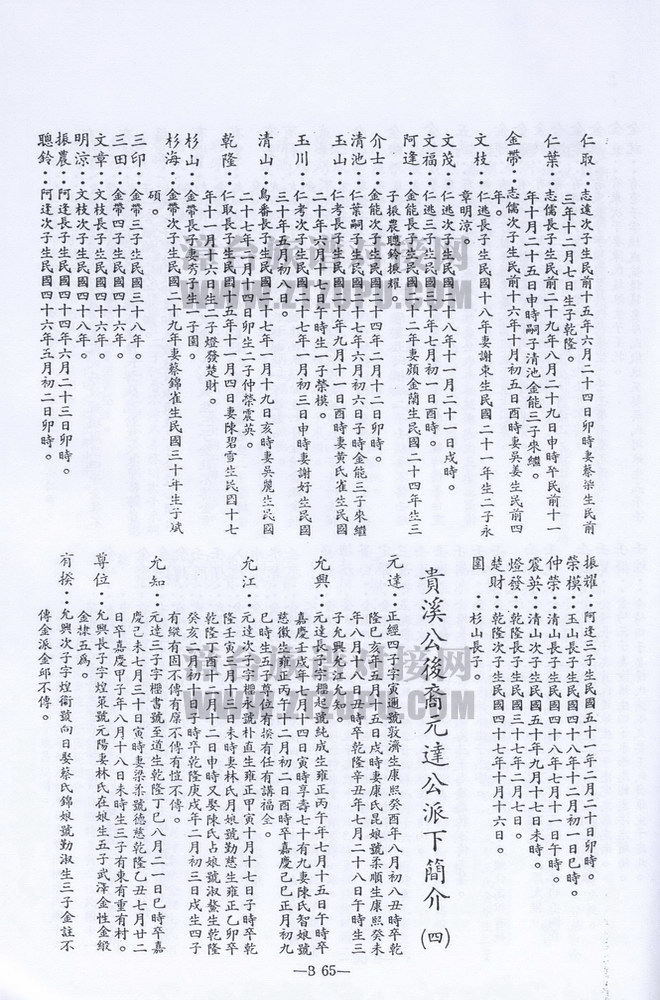 仁取：志遠次子生民前十五年六月二十四日卯時妻蔡柒生民前
三年十二月七日生子乾隆。
仁葉：志儒長子生民前二十九年八月二十九日申時卒民前十一
年十月二十五日申時嗣子清池金能三子來繼。
金帶：志儒次子生民前十六年十月初五日酉時妻吳姜生民前四
年。
文枝：仁逃長子生民國十八年妻謝束生民國二十一年生二子永
章明涼。
文茂：仁逃次子生民國二十八年十一月二十一日戌時。
文福：仁逃三子生民國三十年七月初一日酉時。
阿逢：金能長子生民國二十二年妻顏金蘭生民國二十四年生三
子振農聰鈴振耀。
介士：金能次子生民國十四年二月十二日卯時。
清池：仁葉嗣子生民國十七年六月初六日子時金能三子來繼
玉山：仁考長子生民國十年九月十一日酉時妻黃氏雀生民國
二十年六月十七日午時生一子榮模。
玉川：仁考次子生民國十七年一月初三日申時妻謝好生民國
三十年五月初八日。
清山：烏番長子生民國十七年一月十九日亥時妻吳麗生民國
二十七年一月十四日卯生二子仲榮震英。
乾隆：仁取長子生民國十五年十一月四日妻陳碧雪生民國十七
年十一月十六日生二子燈發楚財。
杉山：金帶長子妻秀子生一子園。
杉海：金帶次子生民國二十九年妻蔡錦雀生民國三十年生子斌
碩。
三印：金帶三子生民國三十八年。
三田：金帶四子生民國四十六年。
文章：文枝長子生民國四十六年。
明涼：文枝次子生民國四十八年。
振農：阿逢長子生民國四十四年六月二十三日卯時。
聰鈴：阿逢次子生民國四十六年五月初二日卯時。
振耀：阿逢三子生民國五十一年二月二十日卯時。
榮模：玉山長子生民國四十八年十二月初一日巳時。
仲榮：清山長子生民國四十八年七月十一日午時。
震英：清山次子生民國五十年九月十七日未時。
燈發：乾隆長子生民國三十七年二月七日。
楚財：乾隆次子生民國四十七年十月十六日。
園：杉山長子。
貴溪公後裔元達公派下簡介(四)
元達：正經四子字寅通號敦濟生康熙癸酉年八月初八丑時卒乾
隆巳亥年五月十五日戌時妻康氏昆娘號柔順生康熙癸未
年八月十八日丑時卒乾隆辛丑年七月二十八日午時生三
子允興允江允知。
允興：元達長子字樫起號純成生雍正丙午年七月十五日午時卒
嘉慶壬戌年七月十四日寅時享壽七十有九妻陳氏智娘號
慈徽生雍正丙午十二月初二日酉時卒嘉慶己巳正月初九
巳時生子子尊位有揆有任有講福全。
允江：元達次子字樫永號朴直生雍正甲寅十月十七日子時卒乾
隆壬寅三月十三日未時妻林氏月娘號勤慈生雍正乙卯卒
乾隆丁酉十二月十二日申時又娶陳氏占娘號淑鏊生乾隆
癸亥二月初十日子時卒乾隆庚戌年二月初三日戌生四子
有縱有固不傳有席不傳有愷不傳。
允知：元達三子字樫書號至道生乾隆丁巳八月二一日巳時卒嘉
慶己未七月三十日寅時妻梁柔號德慈乾隆乙丑七月廿二
日卒嘉慶甲子年八月十八日未時生三子有東有重有村。
尊位：允興長子字煌策號元陽妻林氏在娘生五子武澤金性金緞
金棣五為。
有揆：允興次子字煌衛號向日娶蔡氏錦娘號勤淑生三子金註不
傳金派金邱不傳。
—B 65—